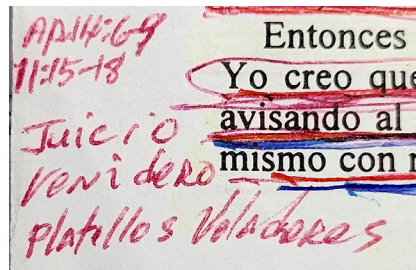 AP.14:6-9
11:15-18
Juicio
venidero
platillos Voladores
Entonces
Yo creo que
avisando al
mismo con